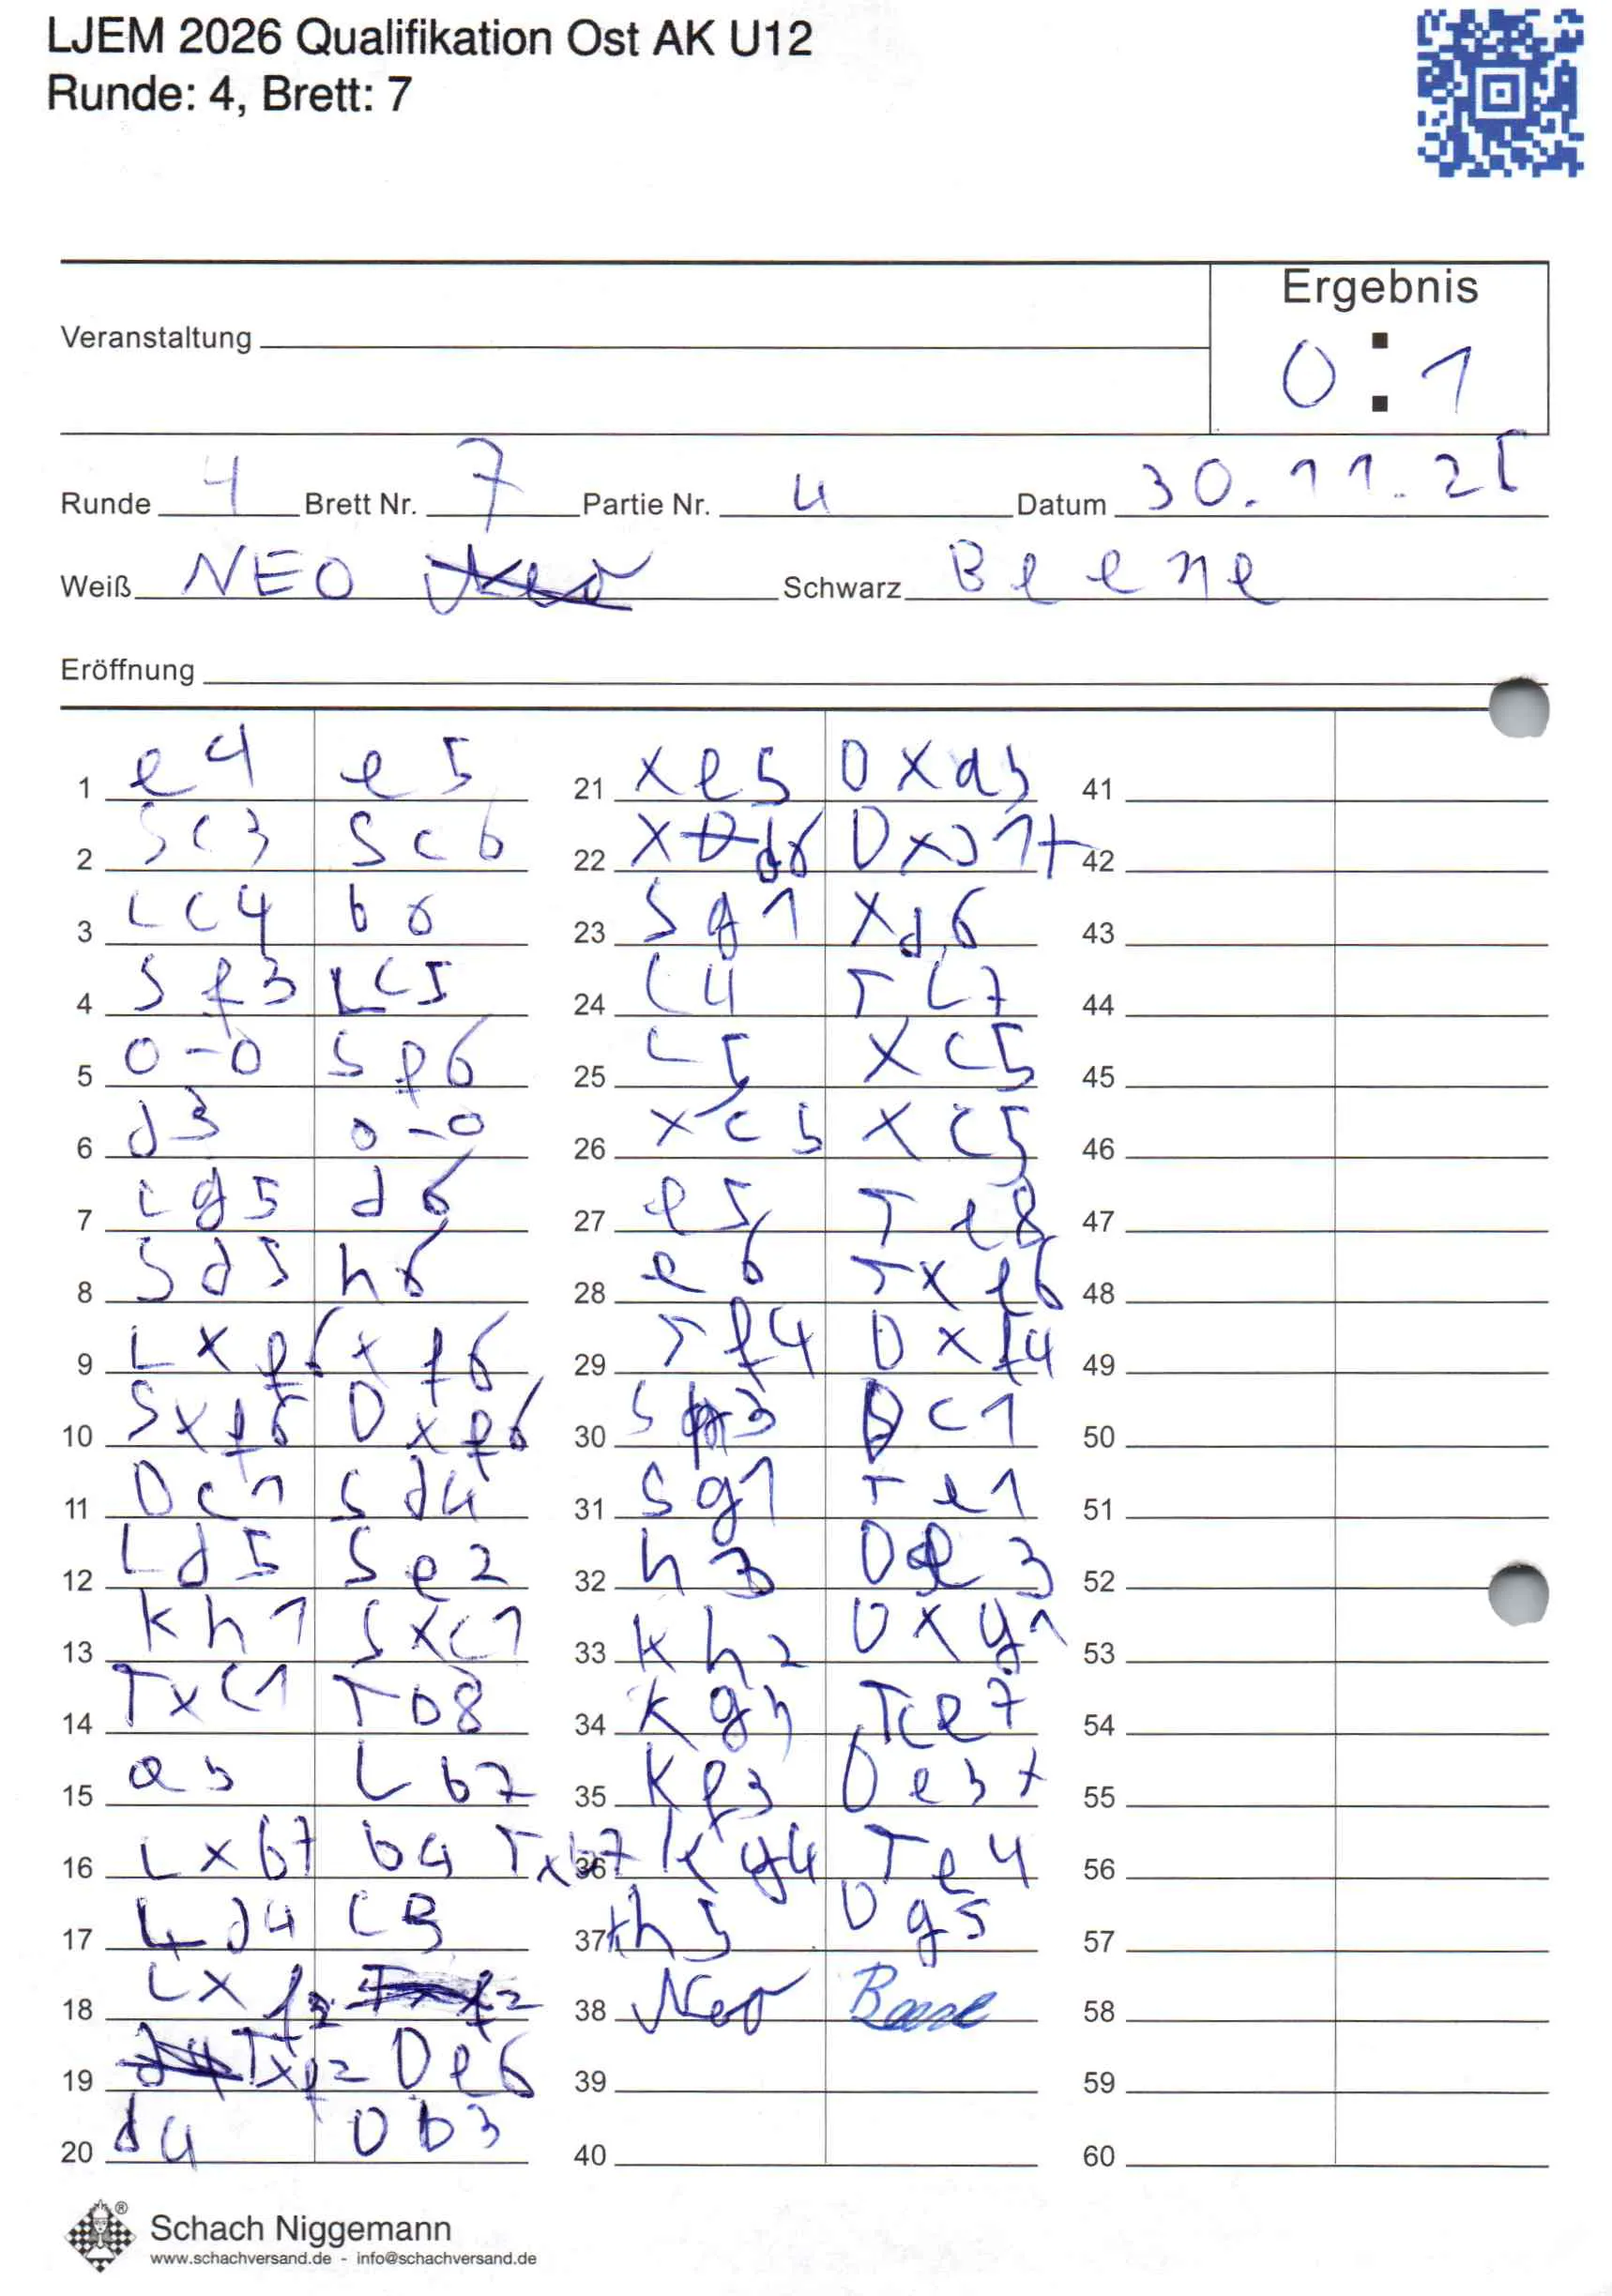 LJEM 2026 Qualifikation Ost AK U12
Runde: 4, Brett: 7
Ergebnis
0 : 1
Veranstaltung
Runde 4 Brett Nr. 7 Partie Nr. 4 Datum 30.11.25
Weiß NEO Schwarz Beene
Eröffnung
1 e4 e5
2 Sc3 Sc6
3 Lc4 b6
4 Sf3 Lc5
5 0-0 Sf6
6 d3 0-0
7 Lg5 d6
8 Sd5 h6
9 Lxf6 xf6
10 Sxf6 Dxf6
11 Dc1 Sd4
12 Ld5 Se2
13 Kh1 Sxc1
14 Txc1 Tb8
15 a3 Lb7
16 Lxb7 Txb7
17 d4
18 Lxf2
19 Txf2 De6
20 d4 Db3
21 xe5 Dxa3
22 xd6
23 Sg1 xd6
24 c4 Tc7
25 c5 xc5
26 xc5 xc5
27 e5 Te8
28 e6 Txe6
29 Tf4 Dxf4
30 Sh3 Dc1
31 Sg1 Te1
32 h3 De3
33 Kh2 Dxg1
34 Kg3 Tce7
35 Kf3 De3+
36 Kg4 Te4
37 Kh5 Dg5
38 Neo Beene
39
40
41
42
43
44
45
46
47
48
49
50
51
52
53
54
55
56
57
58
59
60
Schach Niggemann
www.schachversand.de - info@schachversand.de